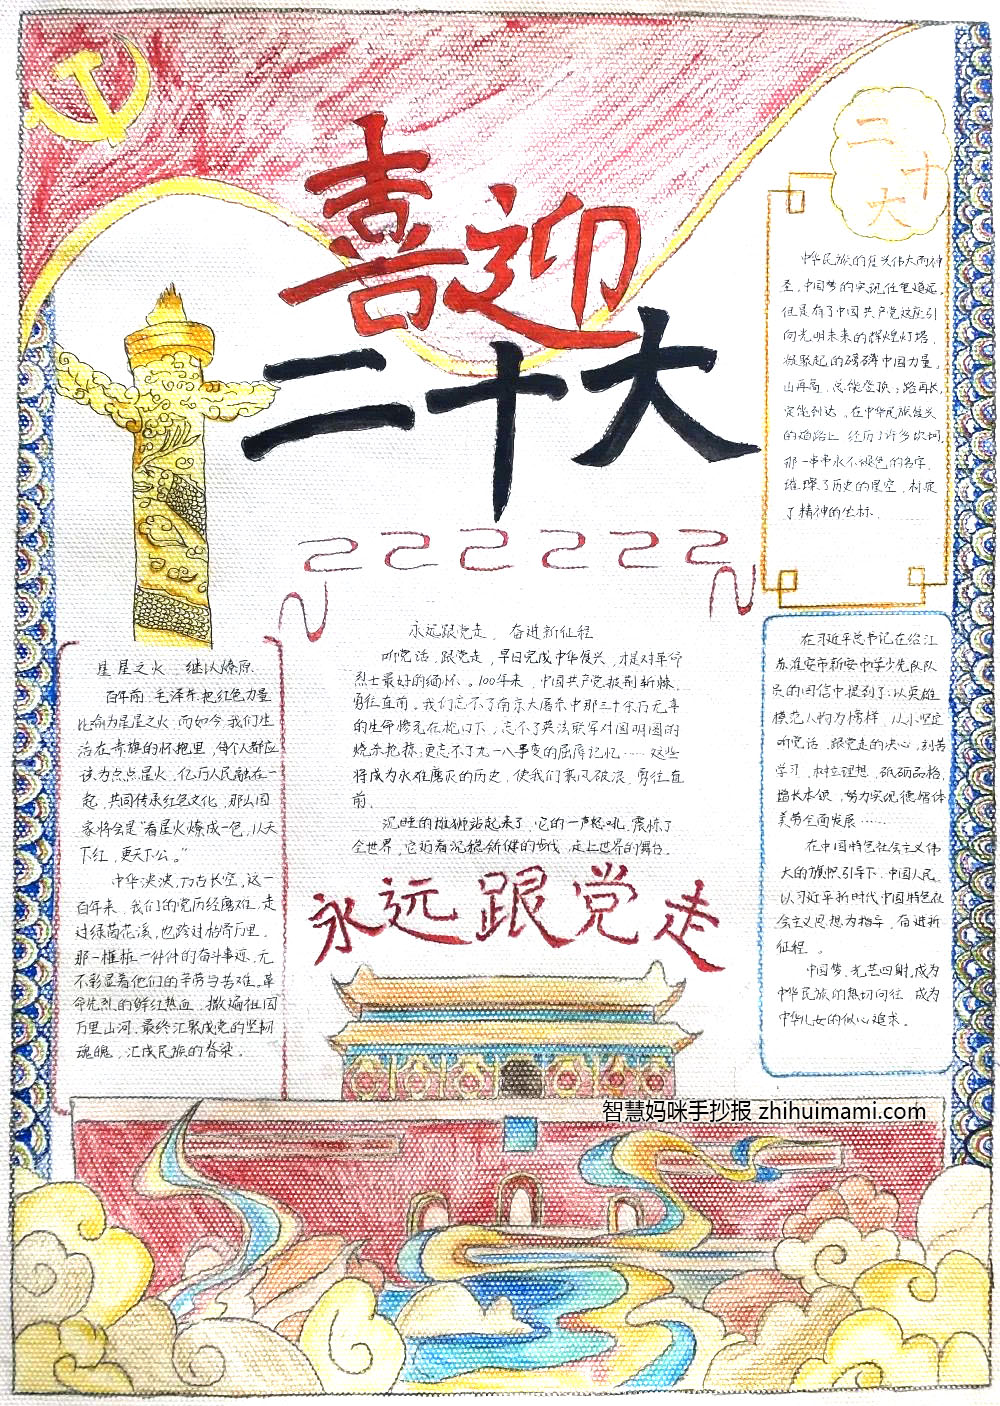 喜迎
二十大
二十大
中华民族的复兴伟大而神
圣,中国梦的实现任重道远,
但是有了中国共产党这座引
向光明未来的辉煌灯塔,
凝聚起的磅礴中国力量,
山再高,总能登顶;路再长,
定能到达。在中华民族复兴
的道路上 经历了许多坎坷,
那一串串永不褪色的名字,
璀璨了历史的星空,树定
了精神的坐标。
星星之火 继以燎原
百年前,毛泽东把红色力量
比喻为星星之火,而如今,我们生
活在奇旗的怀抱里,每个人都应
该为点点星火,亿万人民融在一
起,共同传承红色文化,那么国
家将会是“看星火燎成一色,从天
下红,更天下公。”
中华泱泱,万古长空,这一
百年来,我们的党历经磨难,走
过绿荷花溪,也跨过枯骨万里。
那一桩桩一件件的奋斗事迹,无
不彰显着他们的辛劳与苦难。革
命先烈的鲜红热血,撒遍祖国
万里山河,最终汇聚成党的坚韧
魂魄,汇成民族的脊梁。
永远跟党走,奋进新征程
听党话,跟党走,早日完成中华复兴,才是对革命
烈士最好的缅怀。100年来,中国共产党披荆斩棘,
勇往直前。我们忘不了南京大屠杀中那三十余万无辜
的生命惨死在枪口下,忘不了英法联军对圆明园的
烧杀抢掠,更忘不了九一八事变的屈辱记忆……这些
将成为永难磨灭的历史,使我们乘风破浪,勇往直
前。
沉睡的雄狮站起来了,它的一声怒吼,震惊了
全世界,它迈着沉稳矫健的步伐,走上世界的舞台。
永远跟党走
在习近平总书记在给江
苏淮安市新安中学少先队队
员的回信中提到了:以英雄
模范人物为榜样,从小坚定
听党话,跟党走的决心,刻苦
学习,树立理想,砥砺品格,
增长本领,努力实现德智体
美劳全面发展……
在中国特色社会主义伟
大的旗帜引导下,中国人民,
以习近平新时代中国特色社
会主义思想为指导,奋进新
征程。
中国梦,光芒四射,成为
中华民族的热切向往,成为
中华儿女的倾心追求。
智慧妈咪手抄报 zhihuimami.com